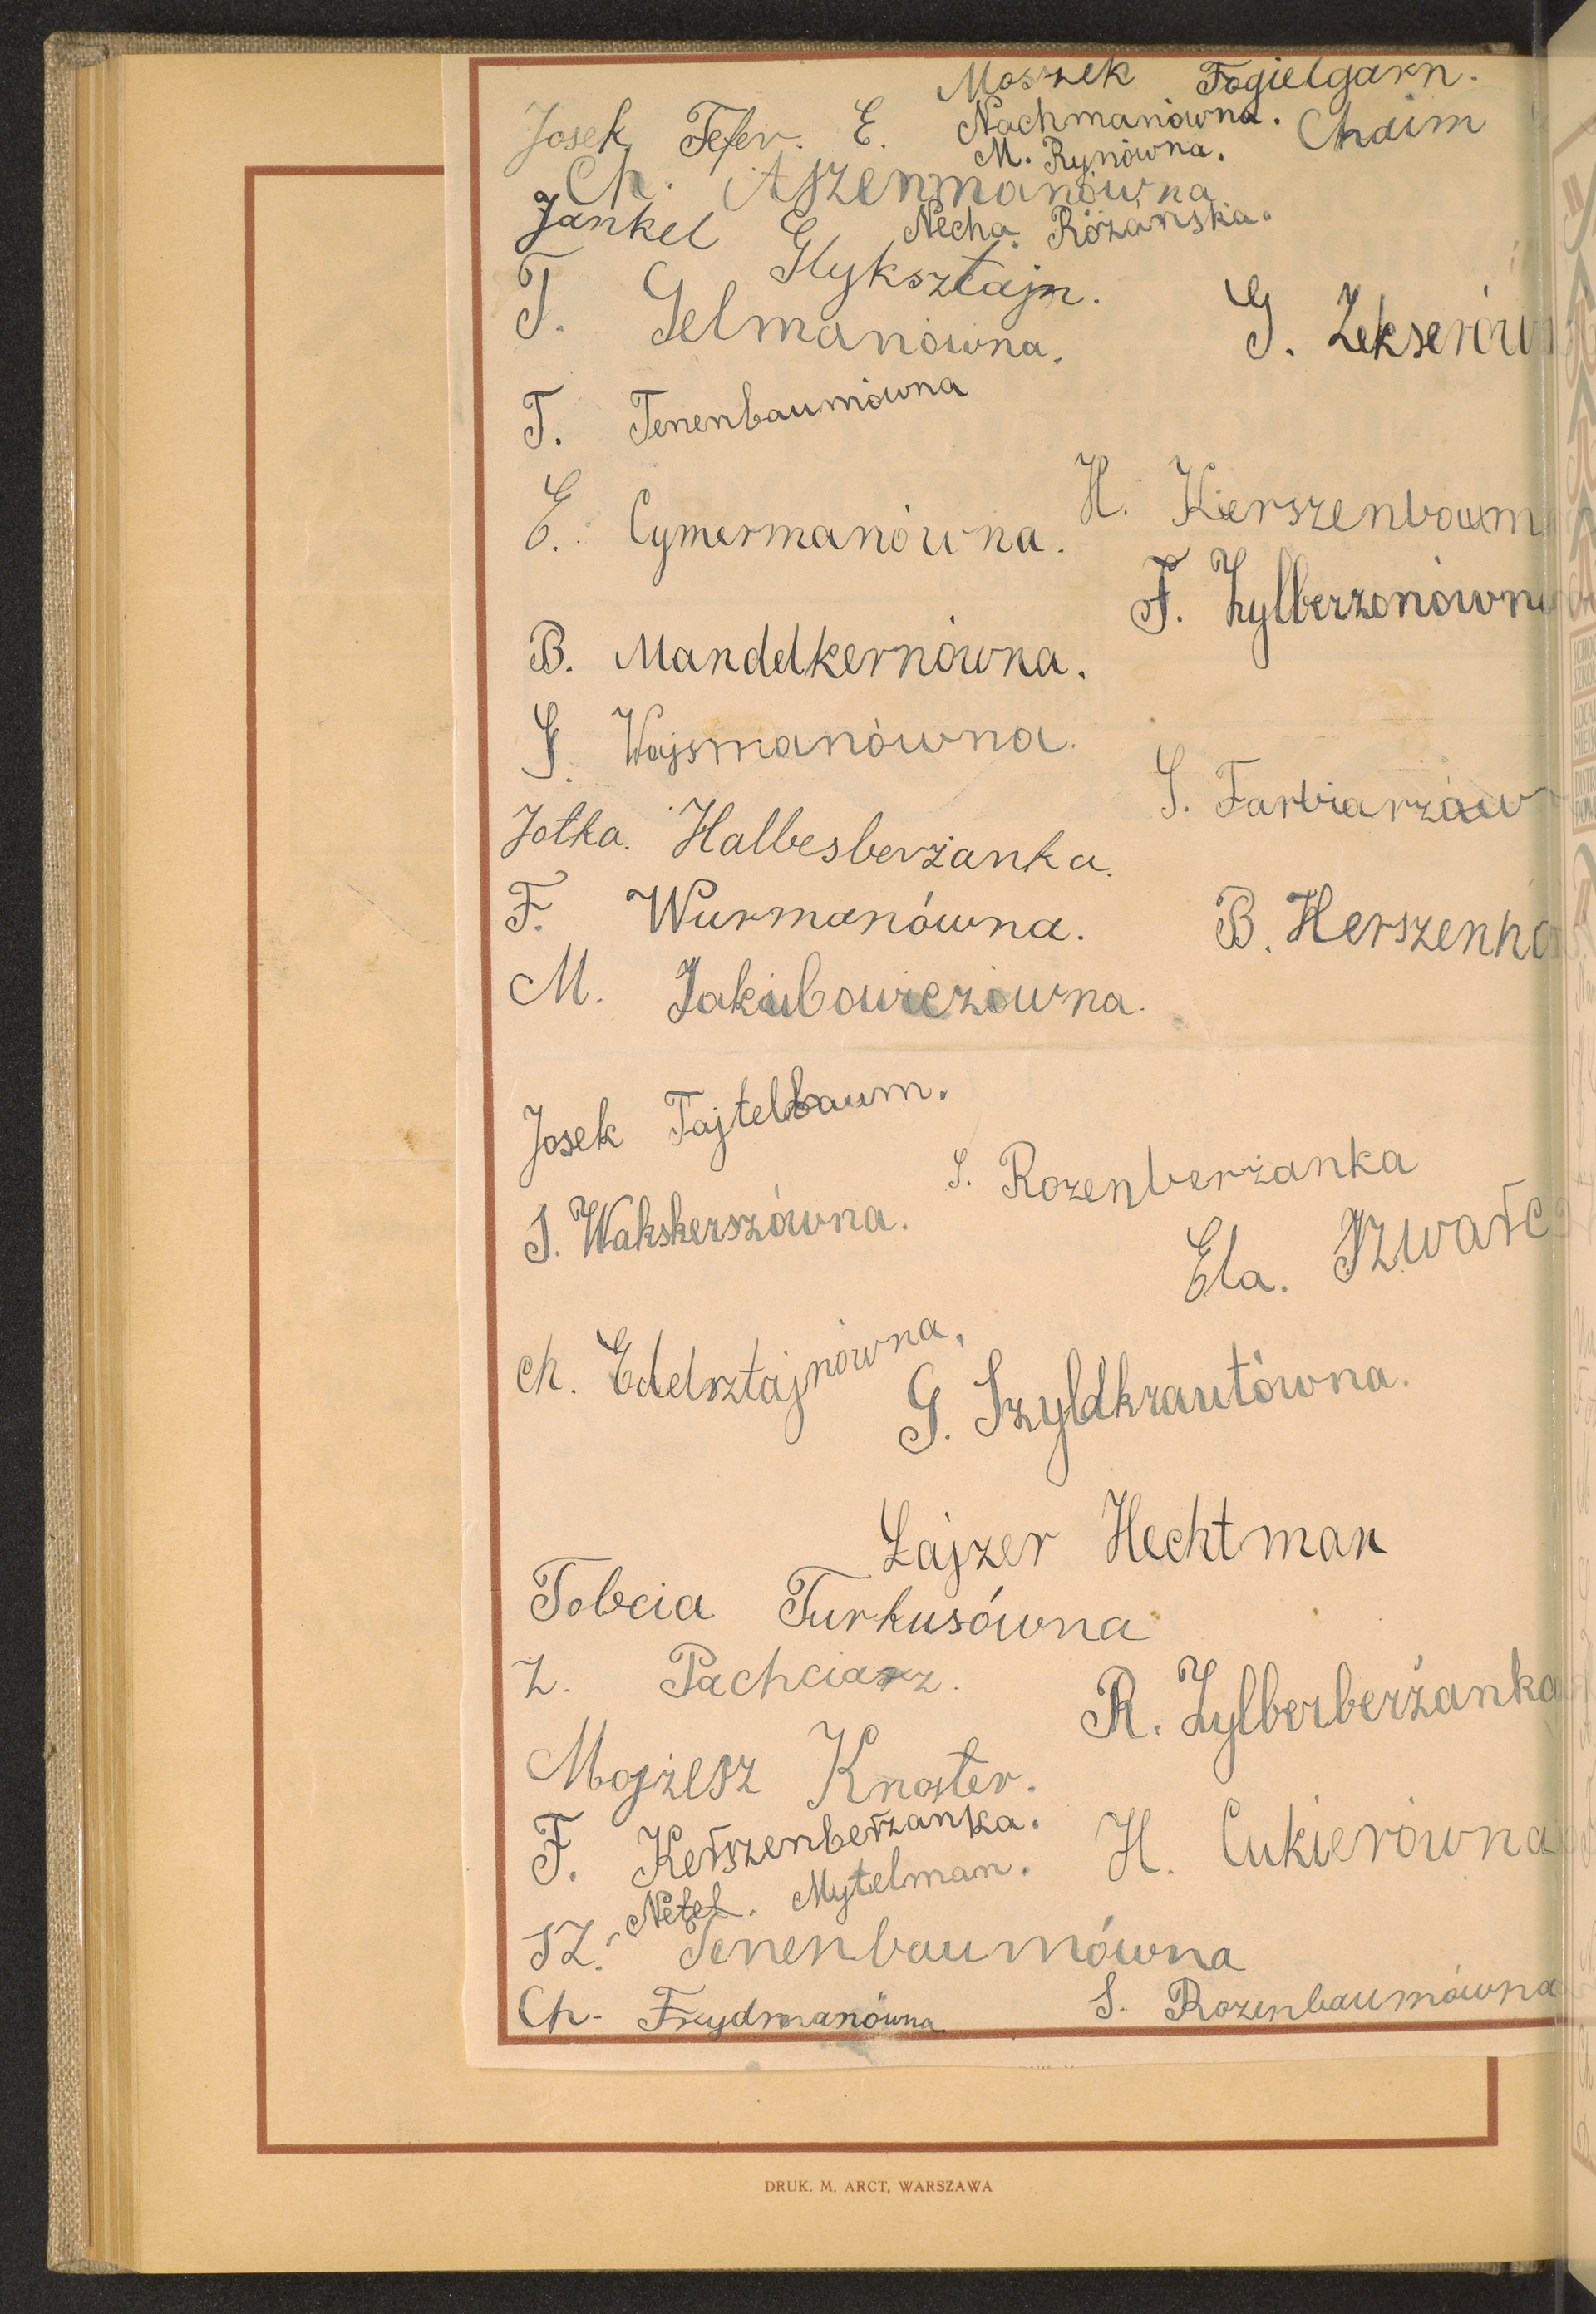 Moszek Fogielgarn.
Josek Fefer. E. Nachmanówna. Chaim
M. Rynówna.
Ch. Aszenmanówna
Jankel Glyksztajn.
Necha Różańska.
T. Gelmanówna.
G. Zekserów
T. Tenenbaumówna
H. Kierszenbaum
E. Cymermanówna.
F. Zylberzonówn
B. Mandelkernówna.
S. Wajsmanówna.
S. Farbiarzów
Jotka. Halbesberżanka.
F. Wurmanówna.
B. Herszenho
M. Jakubowiczówna.
Josek Tajtelbaum.
S. Rozenberżanka
S. Wakskerszówna.
Ela. Szwarc
Ch. Edelsztajnówna.
G. Szyldkrautówna.
Łajzer Hechtman
Tobcia Turkusówna
Z. Pachciarz.
R. Zylberberżanka
Mojżesz Knaster.
F. Kerszenberżanka.
H. Cukierówna
Mytelman.
SZ. Tenenbaumówna
Ch. Frydmanówna
S. Rozenbaumówna
DRUK. M. ARCT, WARSZAWA